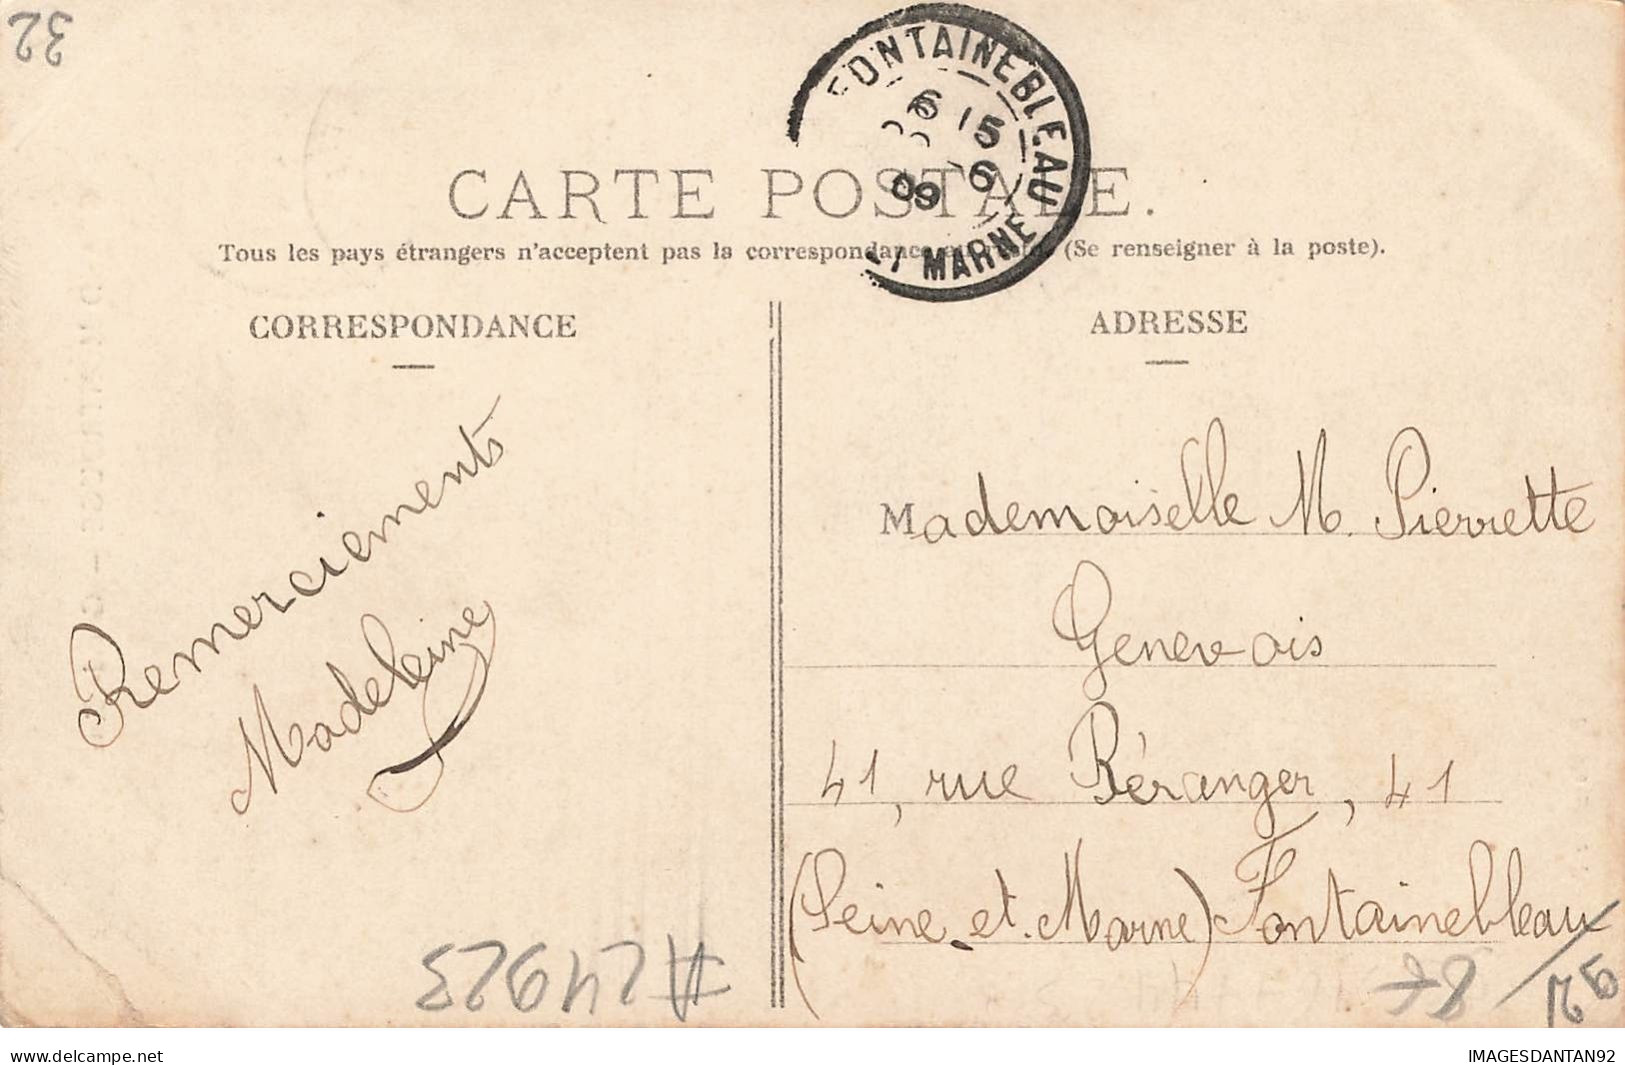 32
FONTAINEBLEAU
6 15
6
09
ET MARNE
CARTE POSTALE.
Tous les pays étrangers n'acceptent pas la correspondance (Se renseigner à la poste).
CORRESPONDANCE
ADRESSE
Remerciements
Madeleine
Mademoiselle M. Pierrette
Genevois
41, rue Béranger, 41
(Seine-et-Marne) Fontainebleau
#24923
delcampe.net
IMAGESDANTAN92